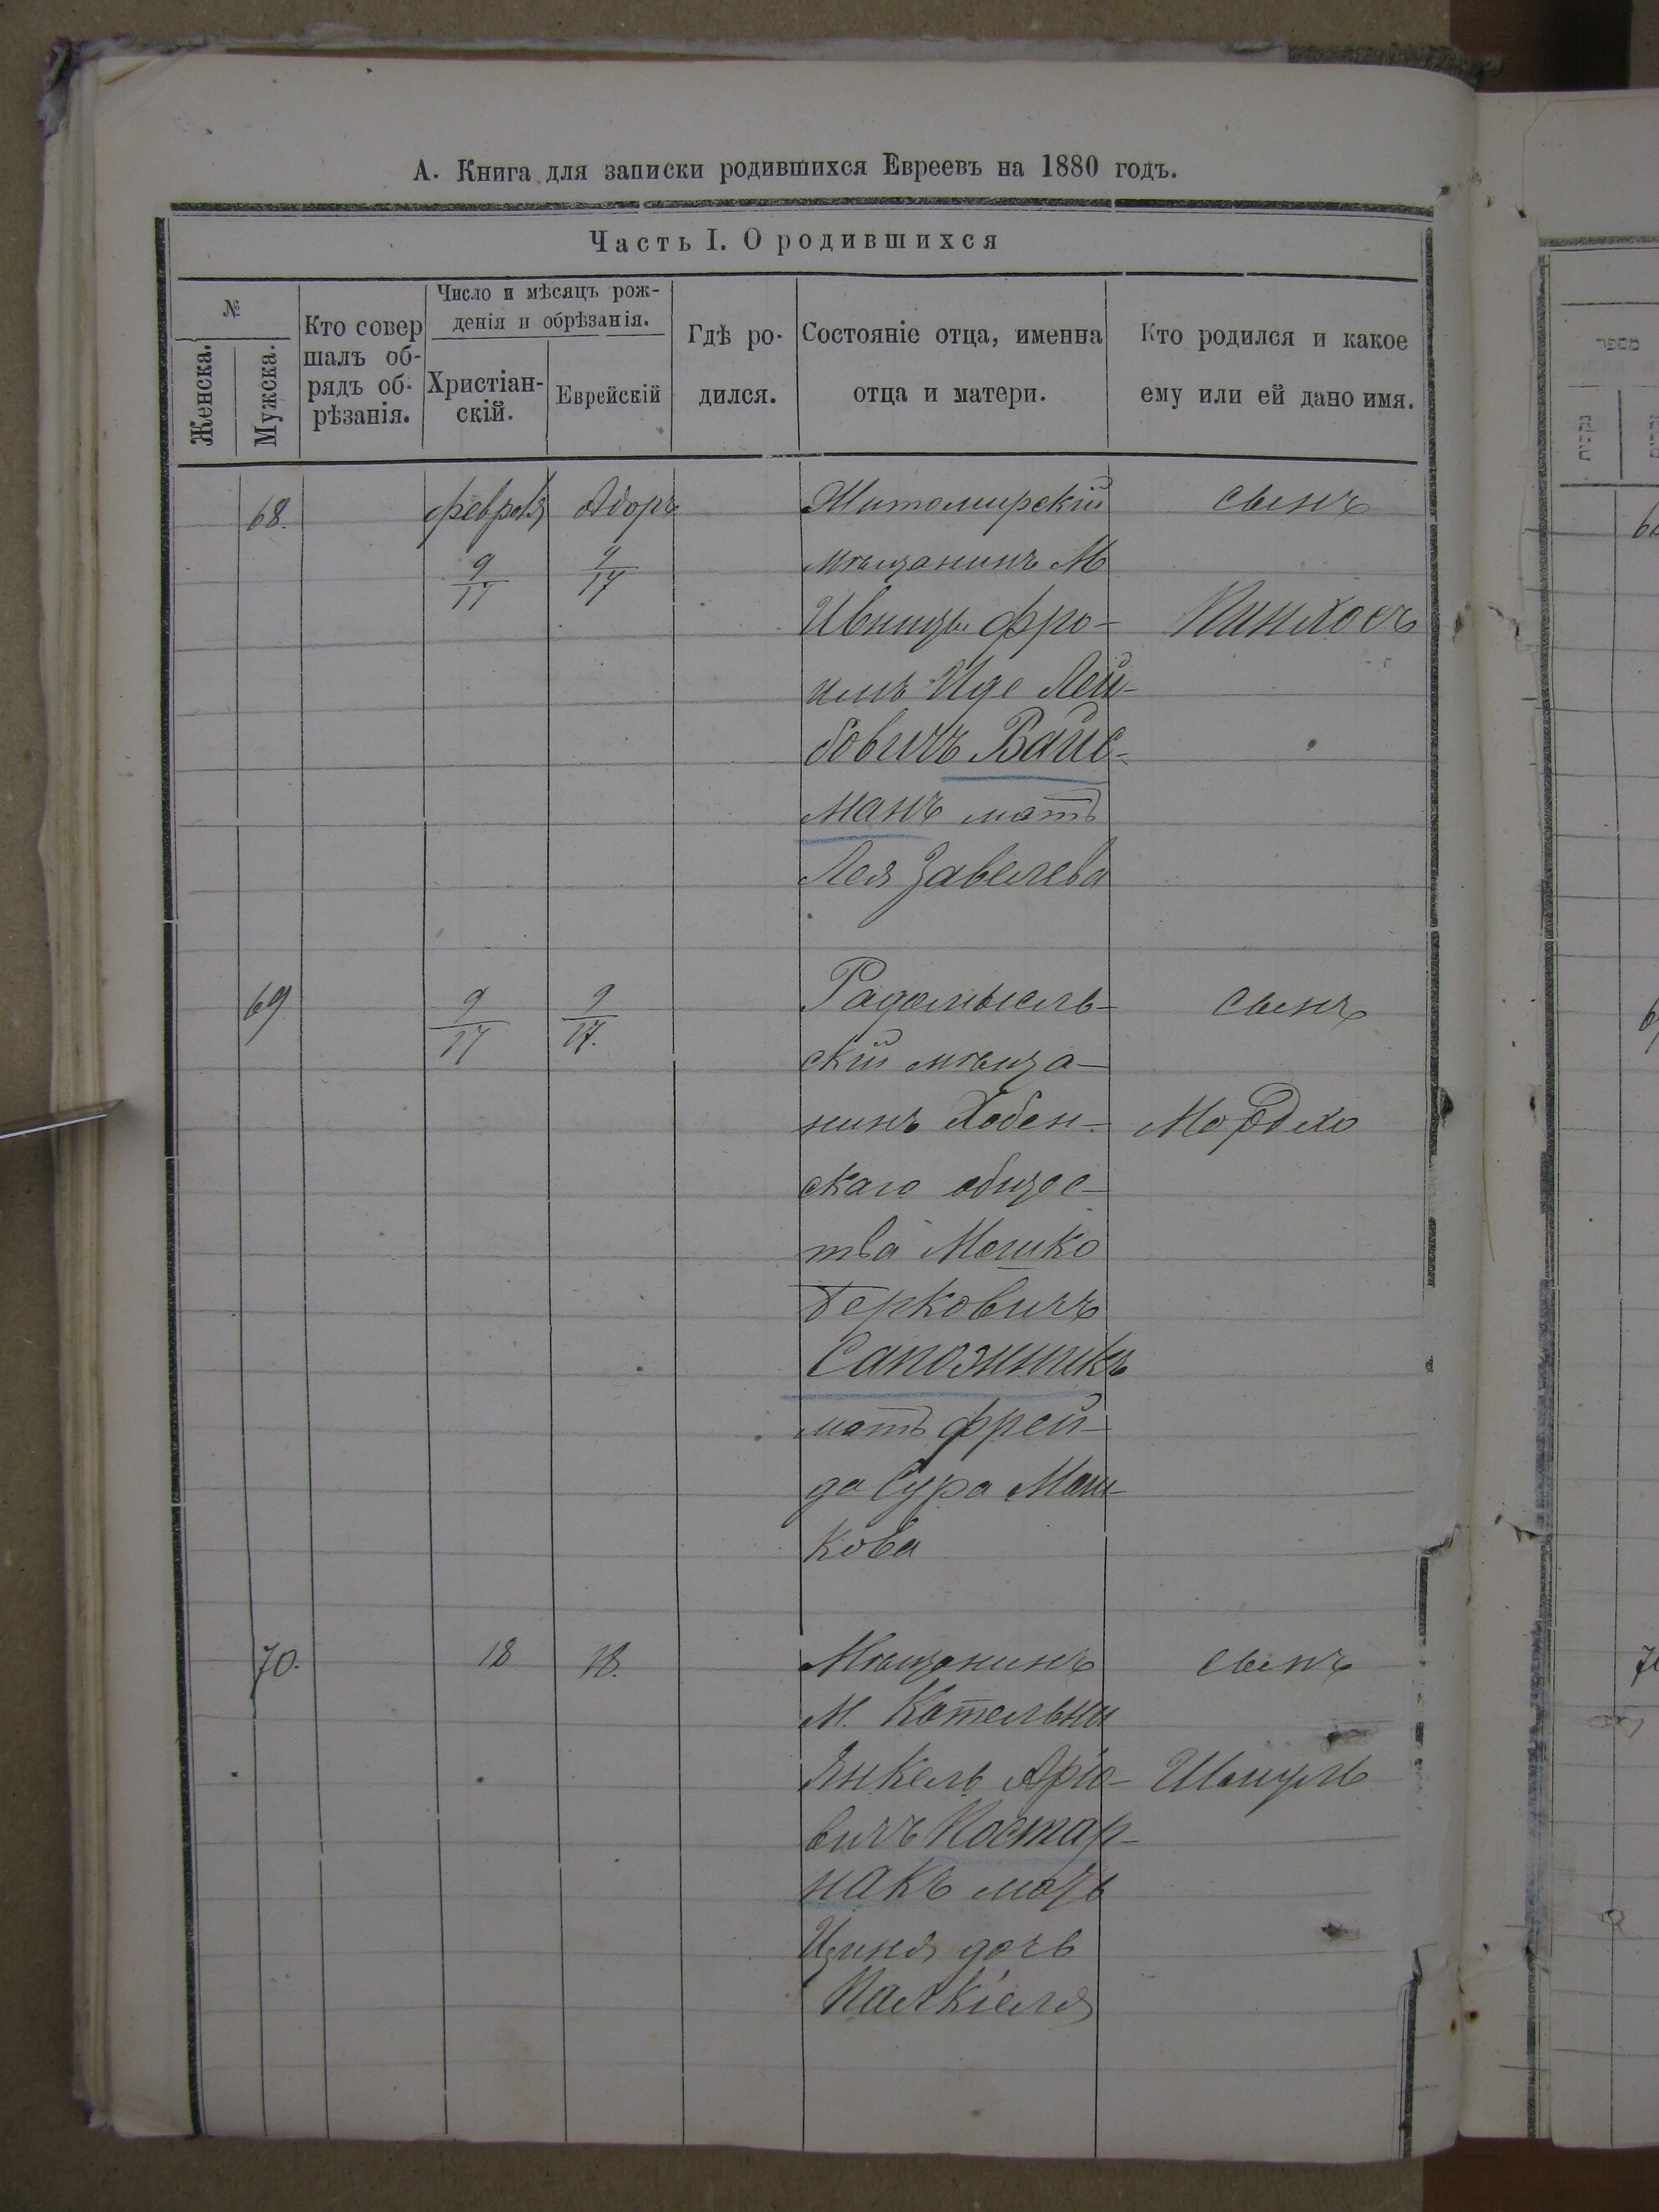 А. Книга для записки родившихся Евреевъ на 1880 годъ.
Часть I. О родившихся
№
Женска.
Мужска.
Кто совер
шалъ об-
рядъ об-
рѣзанія.
Число и мѣсяцъ рож-
денія и обрѣзанія.
Христіан-
скій.
Еврейскій
Гдѣ ро-
дился.
Состояніе отца, именна
отца и матери.
Кто родился и какое
ему или ей дано имя.
68.
Адоръ
9/17
9/17
Житомирскій
мѣщанинъ М
Ивницы Фро-
имъ Иде Лей-
бовичъ Вайс-
манъ мать
Лея Завелева
сынъ
Пинхосъ
69
9/17
9/17.
Радомысль-
скій мѣща-
нинъ Хабен-
скаго общес-
тва Мошко
Берковичъ
Сапожникъ
мать Фрей-
да Сура Мош-
кова
сынъ
Мордхо
70.
18
18.
Мѣщанинъ
М. Котельни
Янкель Аріо-
вичъ Постар-
накъ мать
дочь
сынъ
Шмуль
מספר
נקבות
70